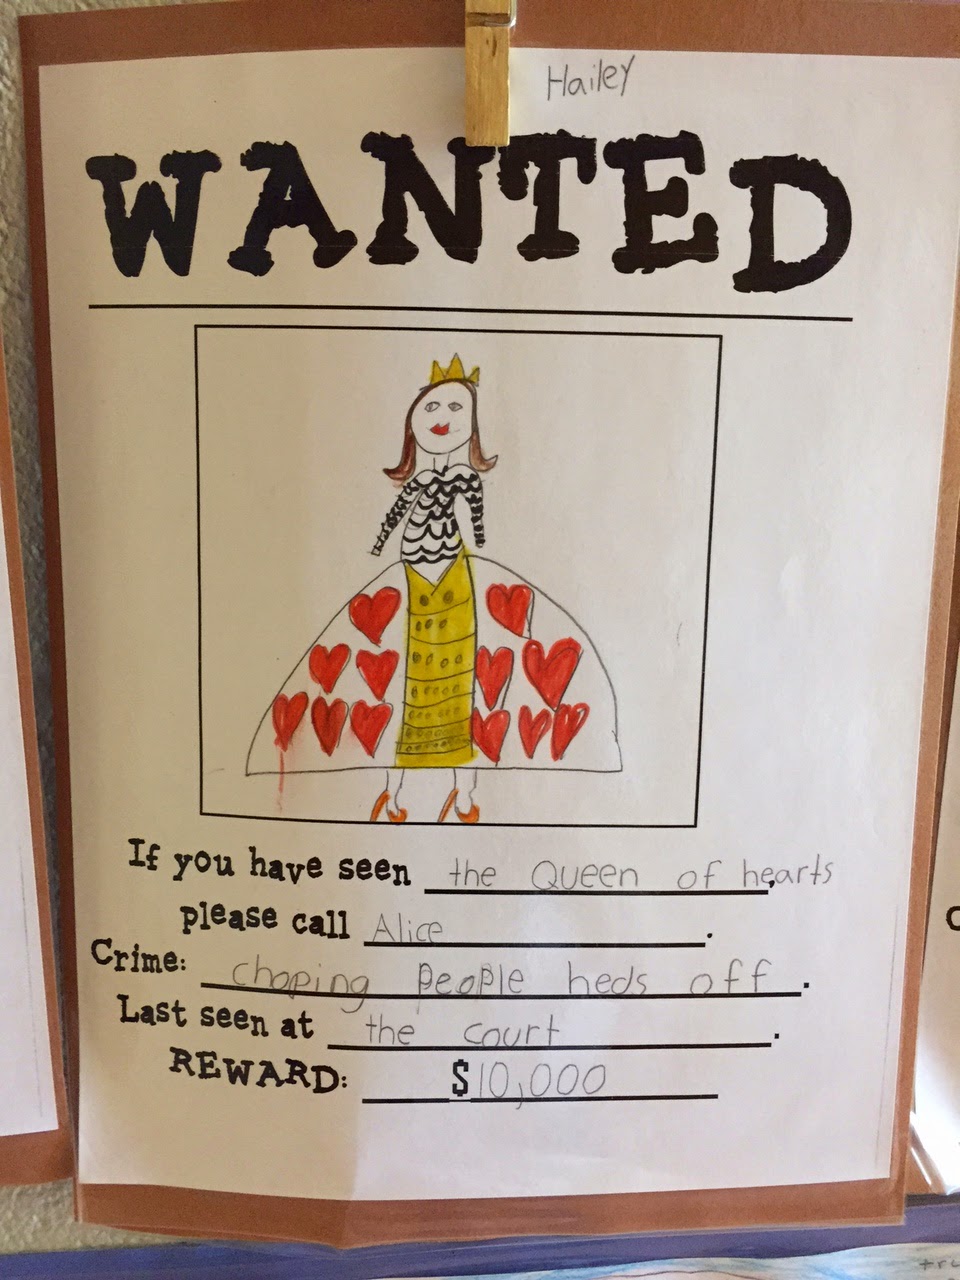 Hailey
WANTED
If you have seen the Queen of hearts,
please call Alice.
Crime: choping people heds off.
Last seen at the court.
REWARD: $10,000